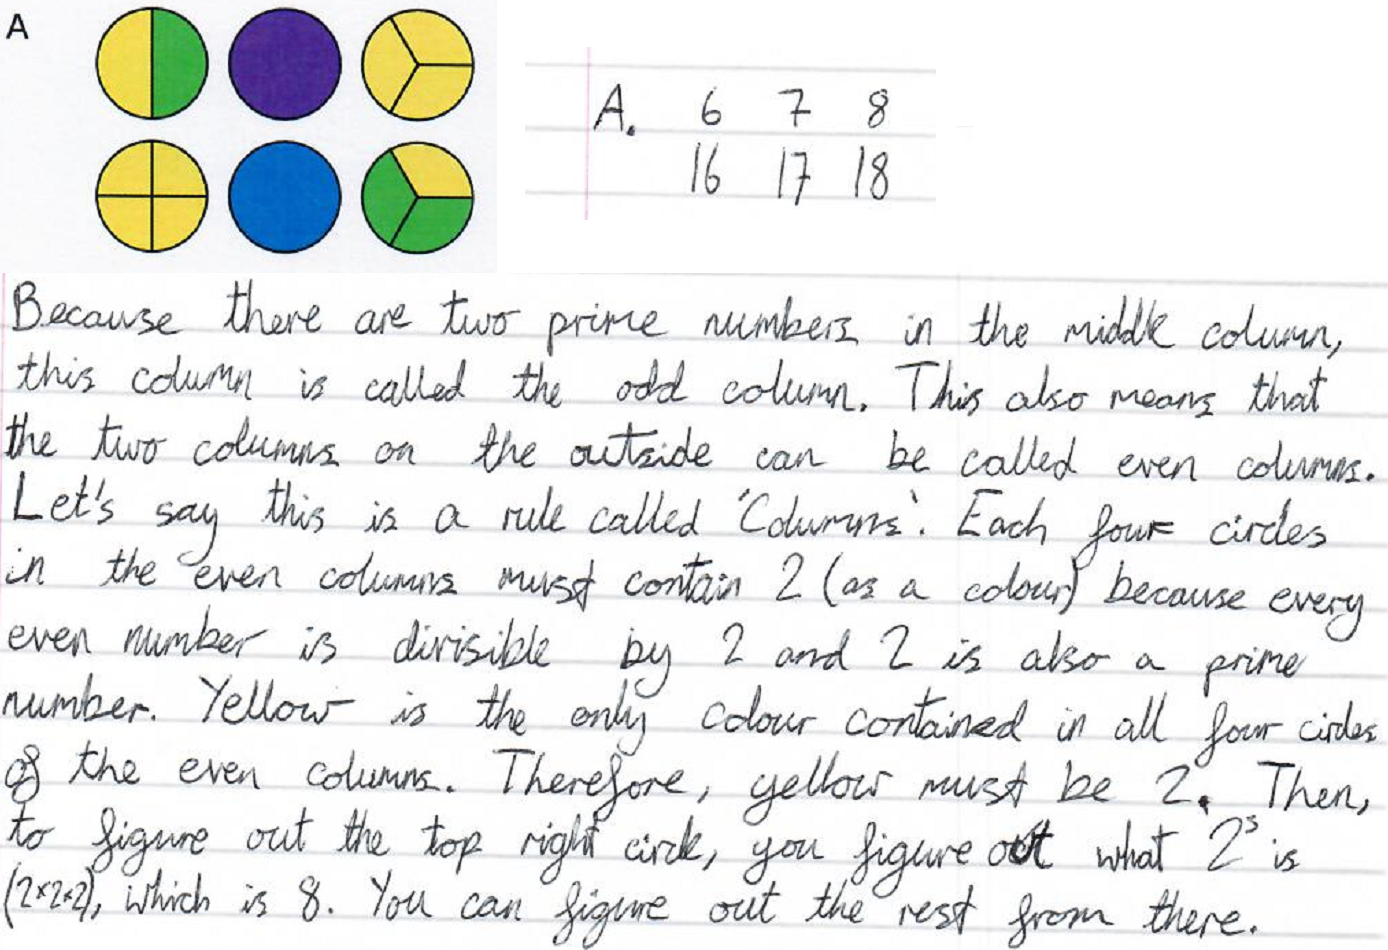 A
A. 6 7 8
16 17 18
Because there are two prime numbers in the middle column,
this column is called the odd column. This also means that
the two columns on the outside can be called even columns.
Let's say this is a rule called 'Columns'. Each four circles
in the even columns must contain 2 (as a colour) because every
even number is divisible by 2 and 2 is also a prime
number. Yellow is the only colour contained in all four circles
of the even columns. Therefore, yellow must be 2. Then,
to figure out the top right circle, you figure out what 2³ is
(2×2×2), which is 8. You can figure out the rest from there.